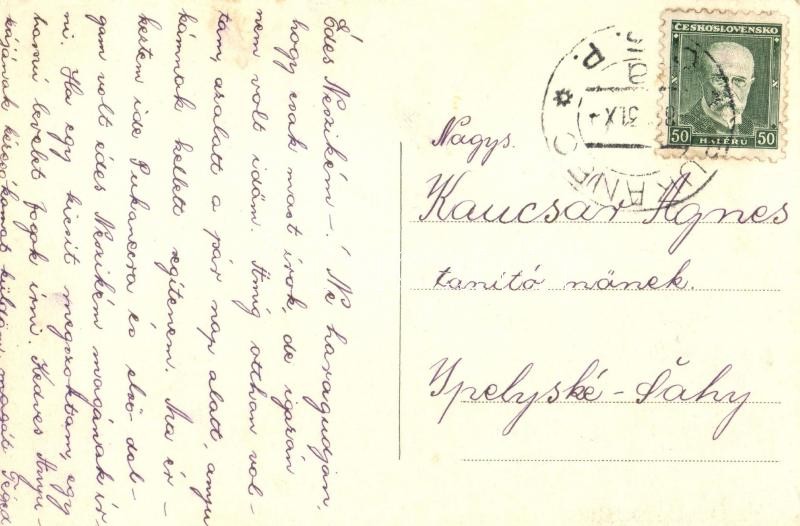 Édes Neszikém-! Ne haragudjon,
hogy csak most írok, de igazán
nem volt időm. Amíg otthon vol-
tam, azalatt a pár nap alatt, anyu
kámnak kellett segítenem. Ma ér-
keztem ide Pukancra és első dol-
gam volt édes Neszikém magának ír-
ni. Ha egy kicsit megszoktam, egy
hosszú levelet fogok írni. Kedves Anyu-
kájának kézcsókomat küldöm, magát
ČESKOSLOVENSKO
50 HALÉRŮ 50
PUKANEC
31.X
Nagys.
Kaucsár Ágnes
tanító nőnek.
Ipelyské-Šahy